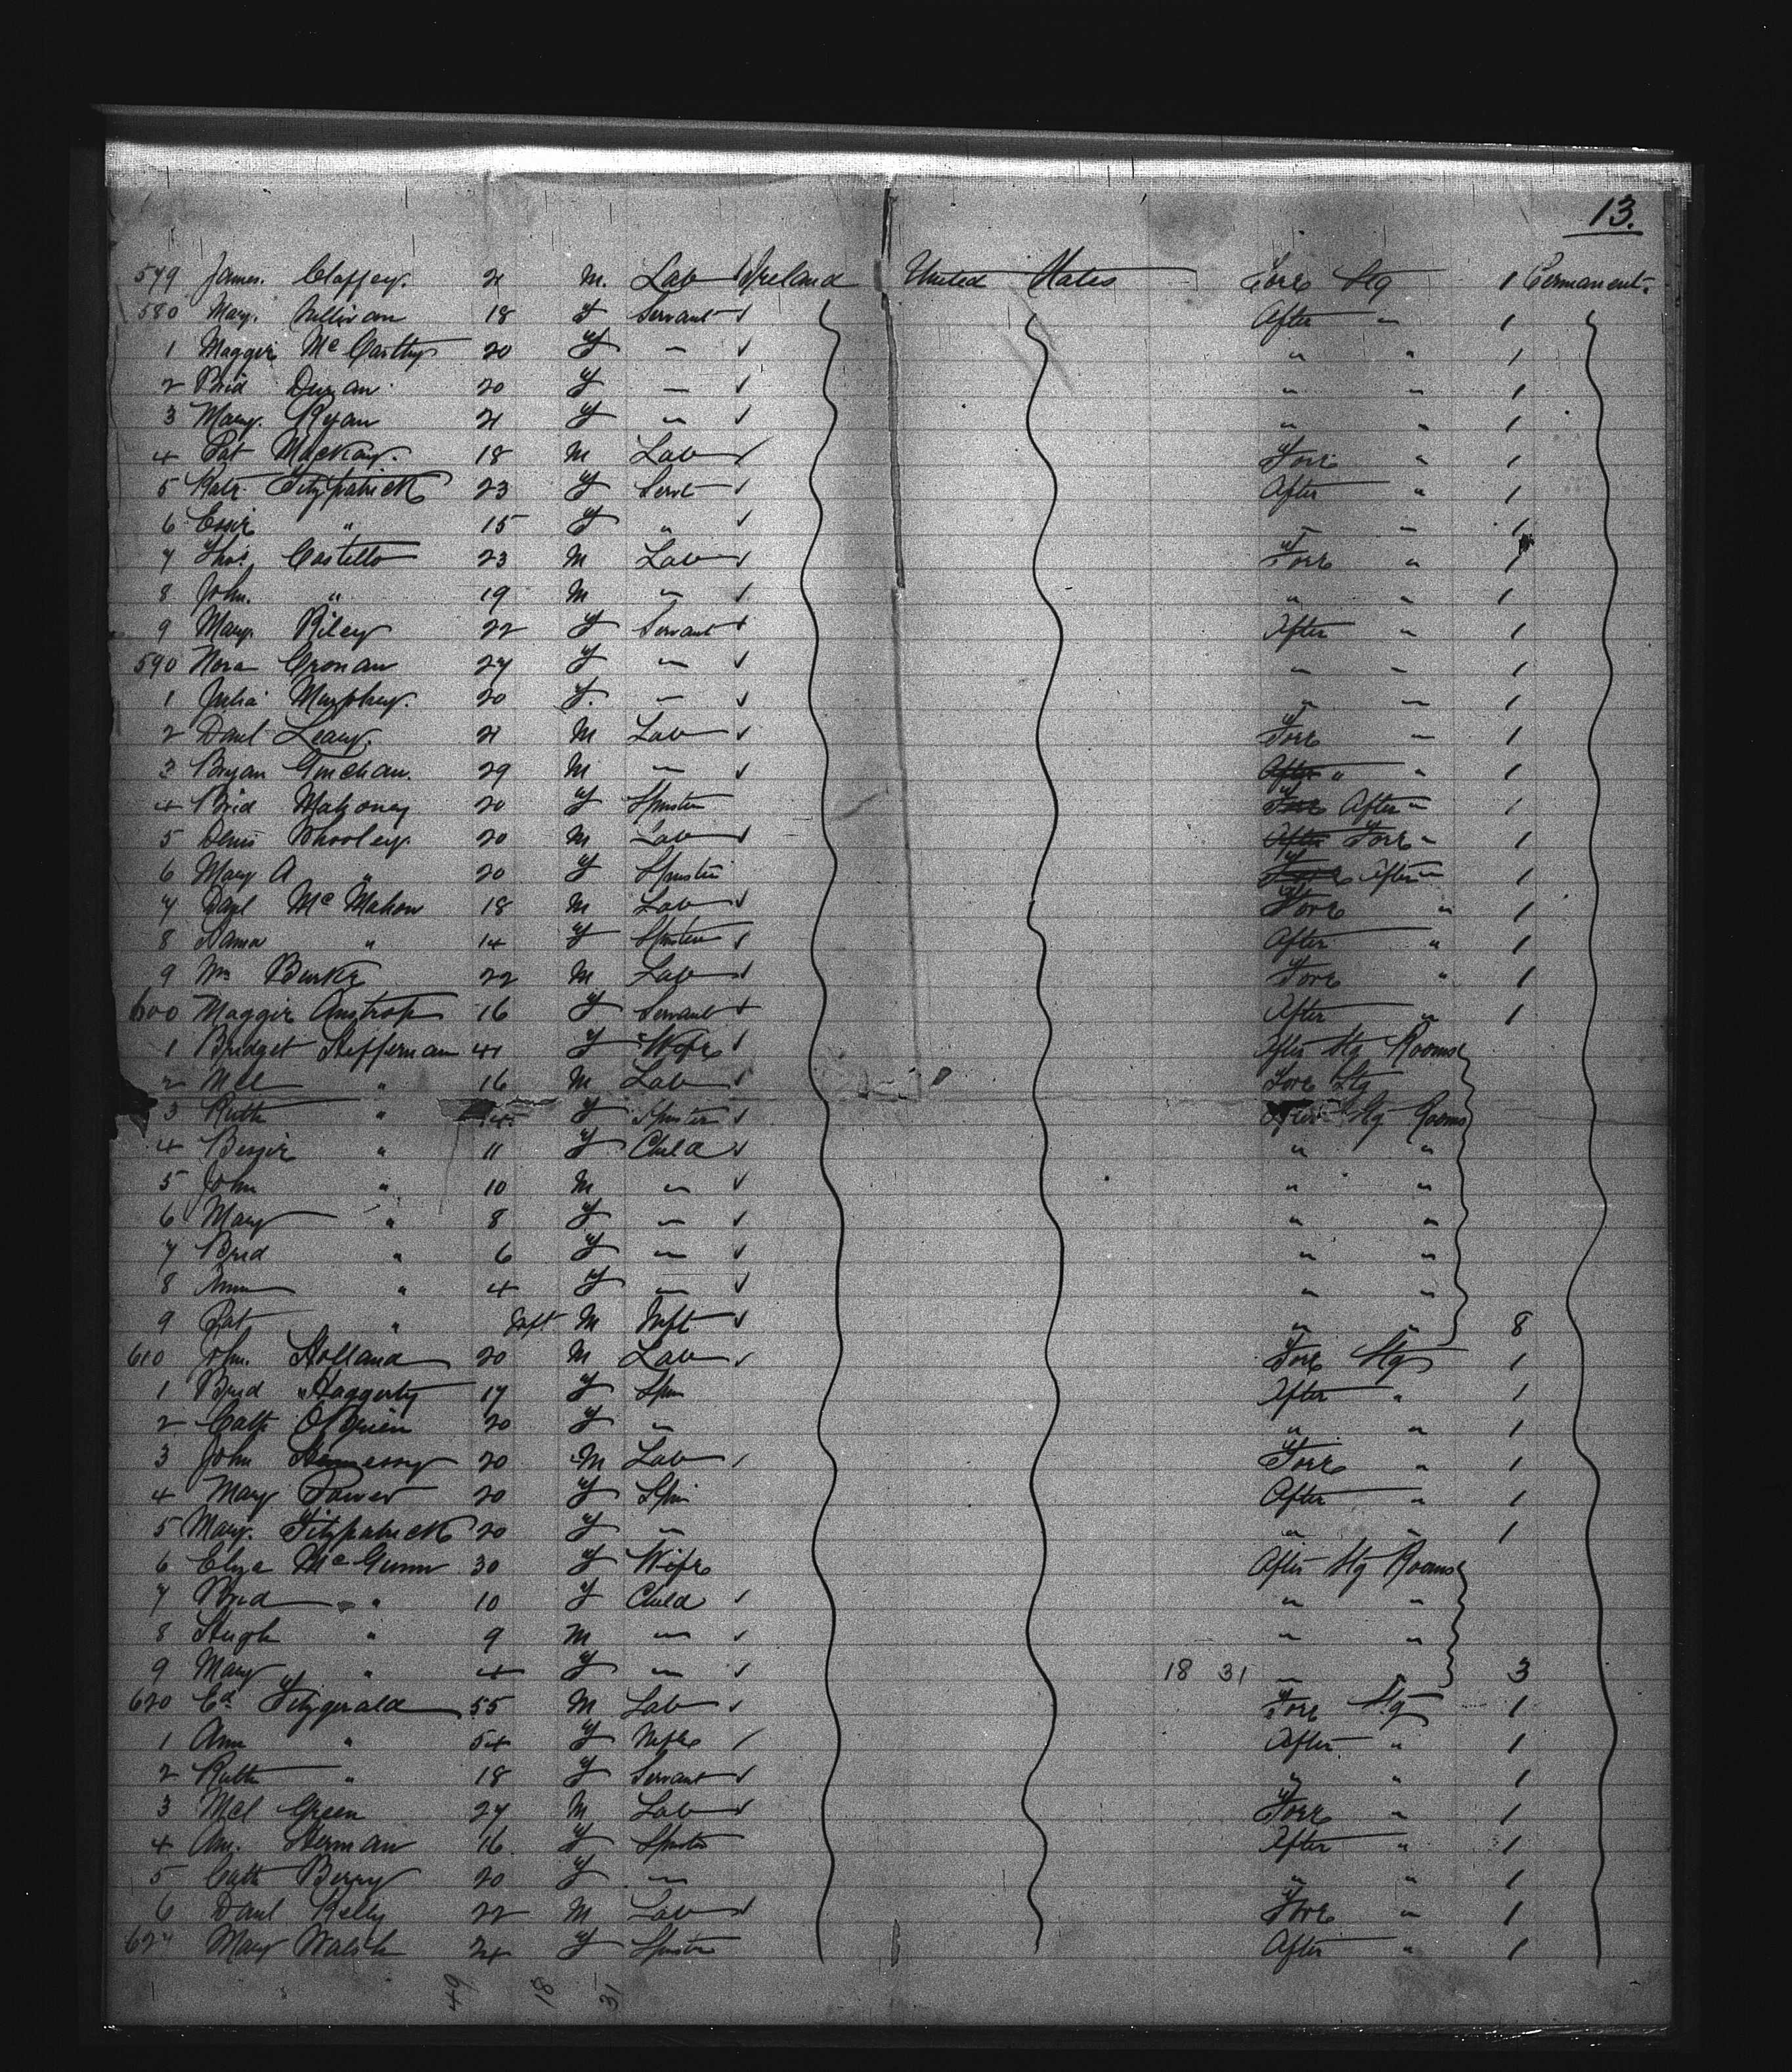 13.
579 James. Claffey. 21 M. Lab Ireland United States Fore Stg 1 Permanent.
580 Mary. Sullivan 18 F Servant ✓ After " 1
1 Maggie McCarthy 20 F " ✓ " " 1
2 Brid Dugan 20 F " ✓ " " 1
3 Mary. Ryan 21 F " ✓ " " 1
4 Pat Mackay. 18 M Lab ✓ Fore " 1
5 Kate Fitzpatrick 23 F Servt ✓ After " 1
6 Essie " 15 F " ✓ " " 1
7 Thos. Costello 23 M Lab ✓ Fore " 1
8 John. " 19 M " ✓ " " 1
9 Mary Riley 22 F Servant ✓ After " 1
590 Nora Cronan 27 F " ✓ " " 1
1 Julia Murphey. 20 F. " ✓ " " 1
2 Danl Leary. 21 M Lab ✓ Fore " 1
3 Bryan 29 M " ✓ After " " 1
4 Brid Mahoney 20 F Spinster Fore After " 1
5 Denis Whooley 20 M Lab ✓ After Fore " 1
6 Mary A " 20 F Spinster Fore After " 1
7 Danl McMahon 18 M Lab ✓ Fore " 1
8 " 14 F Spinster ✓ After " 1
9 Wm Burke 22 M Lab ✓ Fore " 1
600 Maggie 16 F Servant ✓ After " 1
1 Bridget Heffernan 41 F Wife ✓ After Stg Rooms
2 Mcl " 16 M Lab ✓ Fore Stg
3 Kath " 14 F Spinster ✓ After Stg Rooms
4 Bessie " 11 F Child ✓ " "
5 John " 10 M " ✓ " "
6 Mary " 8 F " ✓ " "
7 Brid " 6 F " ✓ " "
8 Ann " 4 F " ✓ " "
9 Pat " Inft M Inft ✓ " " 8
610 John. Holland 20 M Lab ✓ Fore Stg 1
1 Brid Haggerty 17 F Spin After " 1
2 Cath O'Brien 20 F " " " 1
3 John Hennessy 20 M Lab ✓ Fore " 1
4 Mary Power 20 F Spin After " 1
5 Mary. Fitzpatrick 20 F " " " 1
6 Eliza McGunn 30 F Wife After Stg Rooms
7 Brid " 10 F Child ✓ " "
8 Hugh " 9 M " ✓ " "
9 Mary " 4 F " ✓ 18 31 " " 3
620 Ed Fitzgerald 55 M Lab ✓ Fore Stg 1
1 Ann " 54 F Wife ✓ After " 1
2 Kath " 18 F Servant ✓ " " 1
3 Mcl Green 27 M Lab ✓ Fore " 1
4 Ann. Herman 16 F Spinster After " 1
5 Cath Berry 20 F " " " 1
6 Danl Kelly 22 M Lab ✓ Fore " 1
627 Mary Walsh 24 F Spinster After " 1
49 18 31